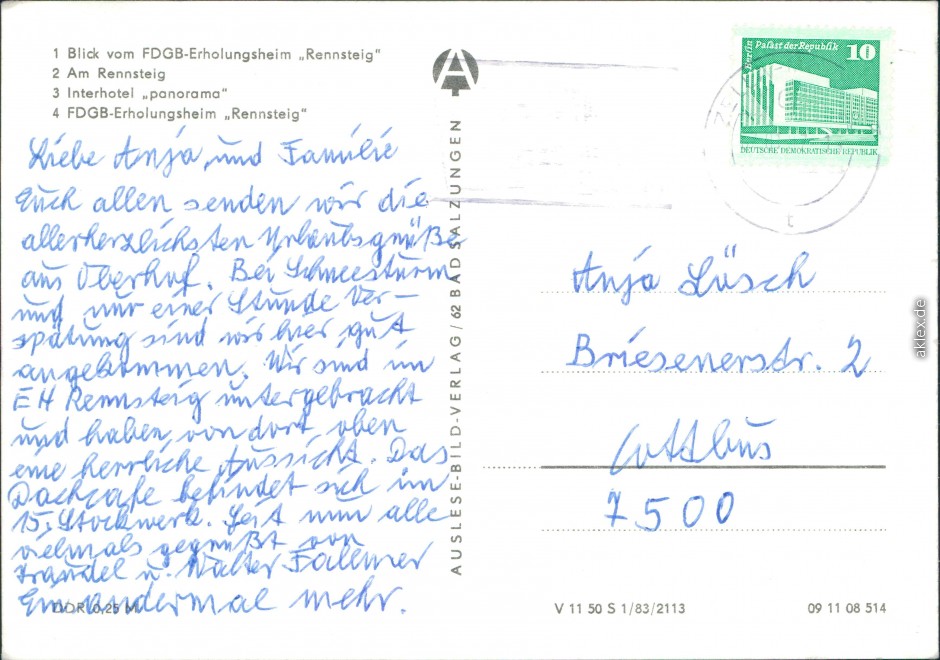 1 Blick vom FDGB-Erholungsheim „Rennsteig"
2 Am Rennsteig
3 Interhotel „panorama"
4 FDGB-Erholungsheim „Rennsteig"
Liebe Anja und Familie
Euch allen senden wir die
allerherzlichsten Urlaubsgrüße
aus Oberhof. Bei Schneesturm
und nur einer Stunde Ver-
spätung sind wir hier gut
angekommen. Wir sind im
EH Rennsteig untergebracht
und haben von dort oben
eine herrliche Aussicht. Das
Dachcafe befindet sich im
15. Stockwerk. Seit nun alle
vielmals gegrüßt von
Traudel u. Walter
Ein andermal mehr.
DDR 0,25 M
AUSLESE-BILD-VERLAG / 62 BAD SALZUNGEN
A
Berlin
Palast der Republik
10
DEUTSCHE DEMOKRATISCHE REPUBLIK
t
Anja Lüsch
Briesenerstr. 2
Cottbus
7500
V 11 50 S 1/83/2113
09 11 08 514
aklex.de